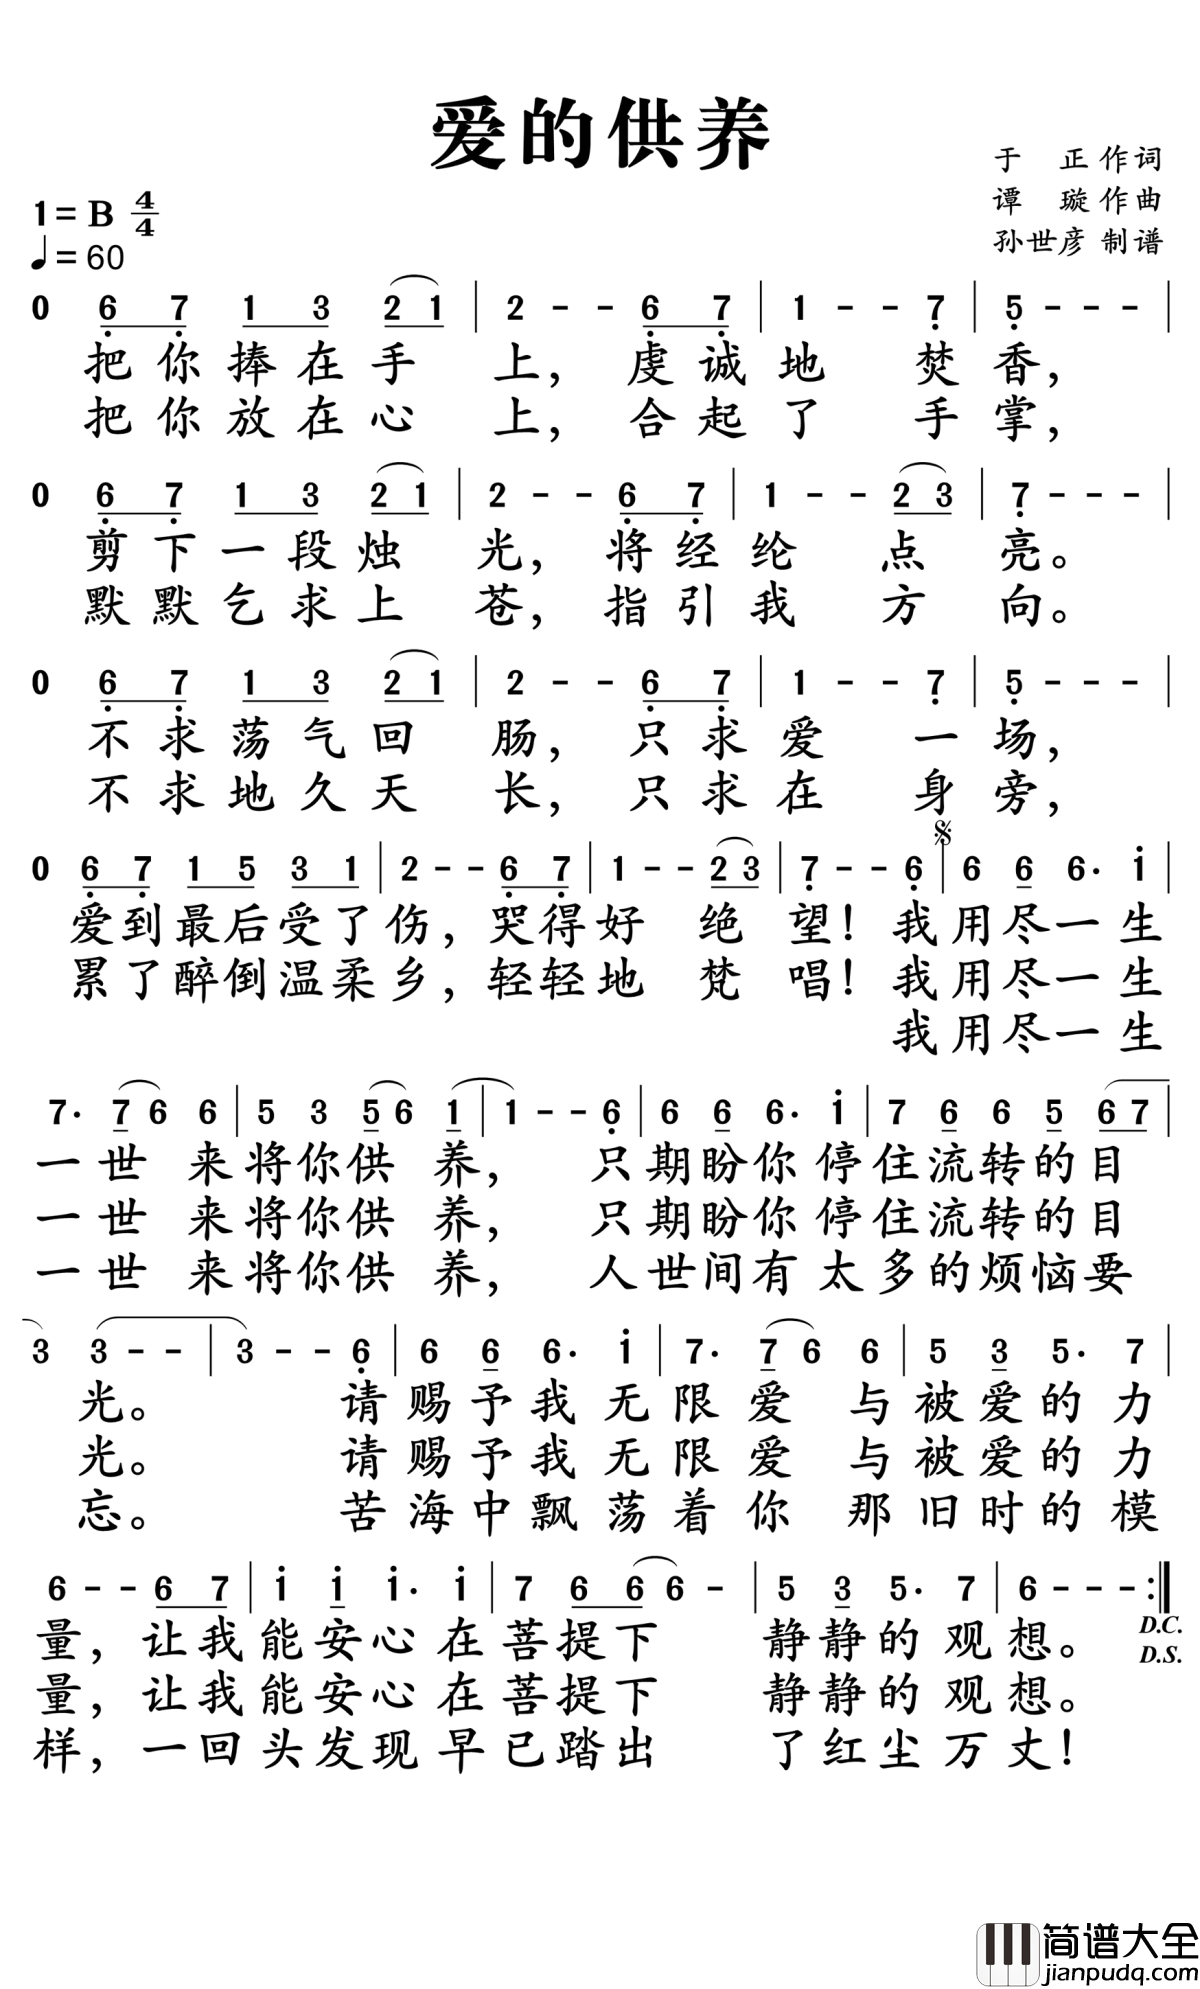 爱的供养
于 正 作词
谭 璇 作曲
孙世彦 制谱
1=B 4/4
♩=60
0 6̣ 7̣ 1 3 2 1 | 2 - - 6̣ 7̣ | 1 - - 7̣ | 5̣ - - - |
把你捧在手 上，虔诚地 焚香，
把你放在心 上，合起了 手掌，
0 6̣ 7̣ 1 3 2 1 | 2 - - 6̣ 7̣ | 1 - - 2 3 | 7̣ - - - |
剪下一段烛 光，将经纶 点 亮。
默默乞求上 苍，指引我 方 向。
0 6̣ 7̣ 1 3 2 1 | 2 - - 6̣ 7̣ | 1 - - 7̣ | 5̣ - - - |
不求荡气回 肠，只求爱 一场，
不求地久天 长，只求在 身旁，
0 6̣ 7̣ 1 5 3 1 | 2 - - 6̣ 7̣ | 1 - - 2 3 | 7̣ - - 6̣ | 6 6 6· i |
爱到最后受了伤，哭得好 绝 望！我用尽一生
累了醉倒温柔乡，轻轻地 梵 唱！我用尽一生
我用尽一生
7· 7 6 6 | 5 3 5 6 1 | 1 - - 6̣ | 6 6 6· i | 7 6 6 5 6 7 |
一世 来将你供 养， 只期盼你停住流转的目
一世 来将你供 养， 只期盼你停住流转的目
一世 来将你供 养， 人世间有太多的烦恼要
3 3 - - | 3 - - 6̣ | 6 6 6· i | 7· 7 6 6 | 5 3 5· 7 |
光。 请赐予我无限爱 与被爱的力
光。 请赐予我无限爱 与被爱的力
忘。 苦海中飘荡着你 那旧时的模
6 - - 6 7 | i i i· i | 7 6 6 6 - | 5 3 5· 7 | 6 - - - :|
量，让我能安心在菩提下 静静的观想。 D.C.
D.S.
量，让我能安心在菩提下 静静的观想。
样，一回头发现早已踏出 了红尘万丈！
简谱大全
jianpudq.com